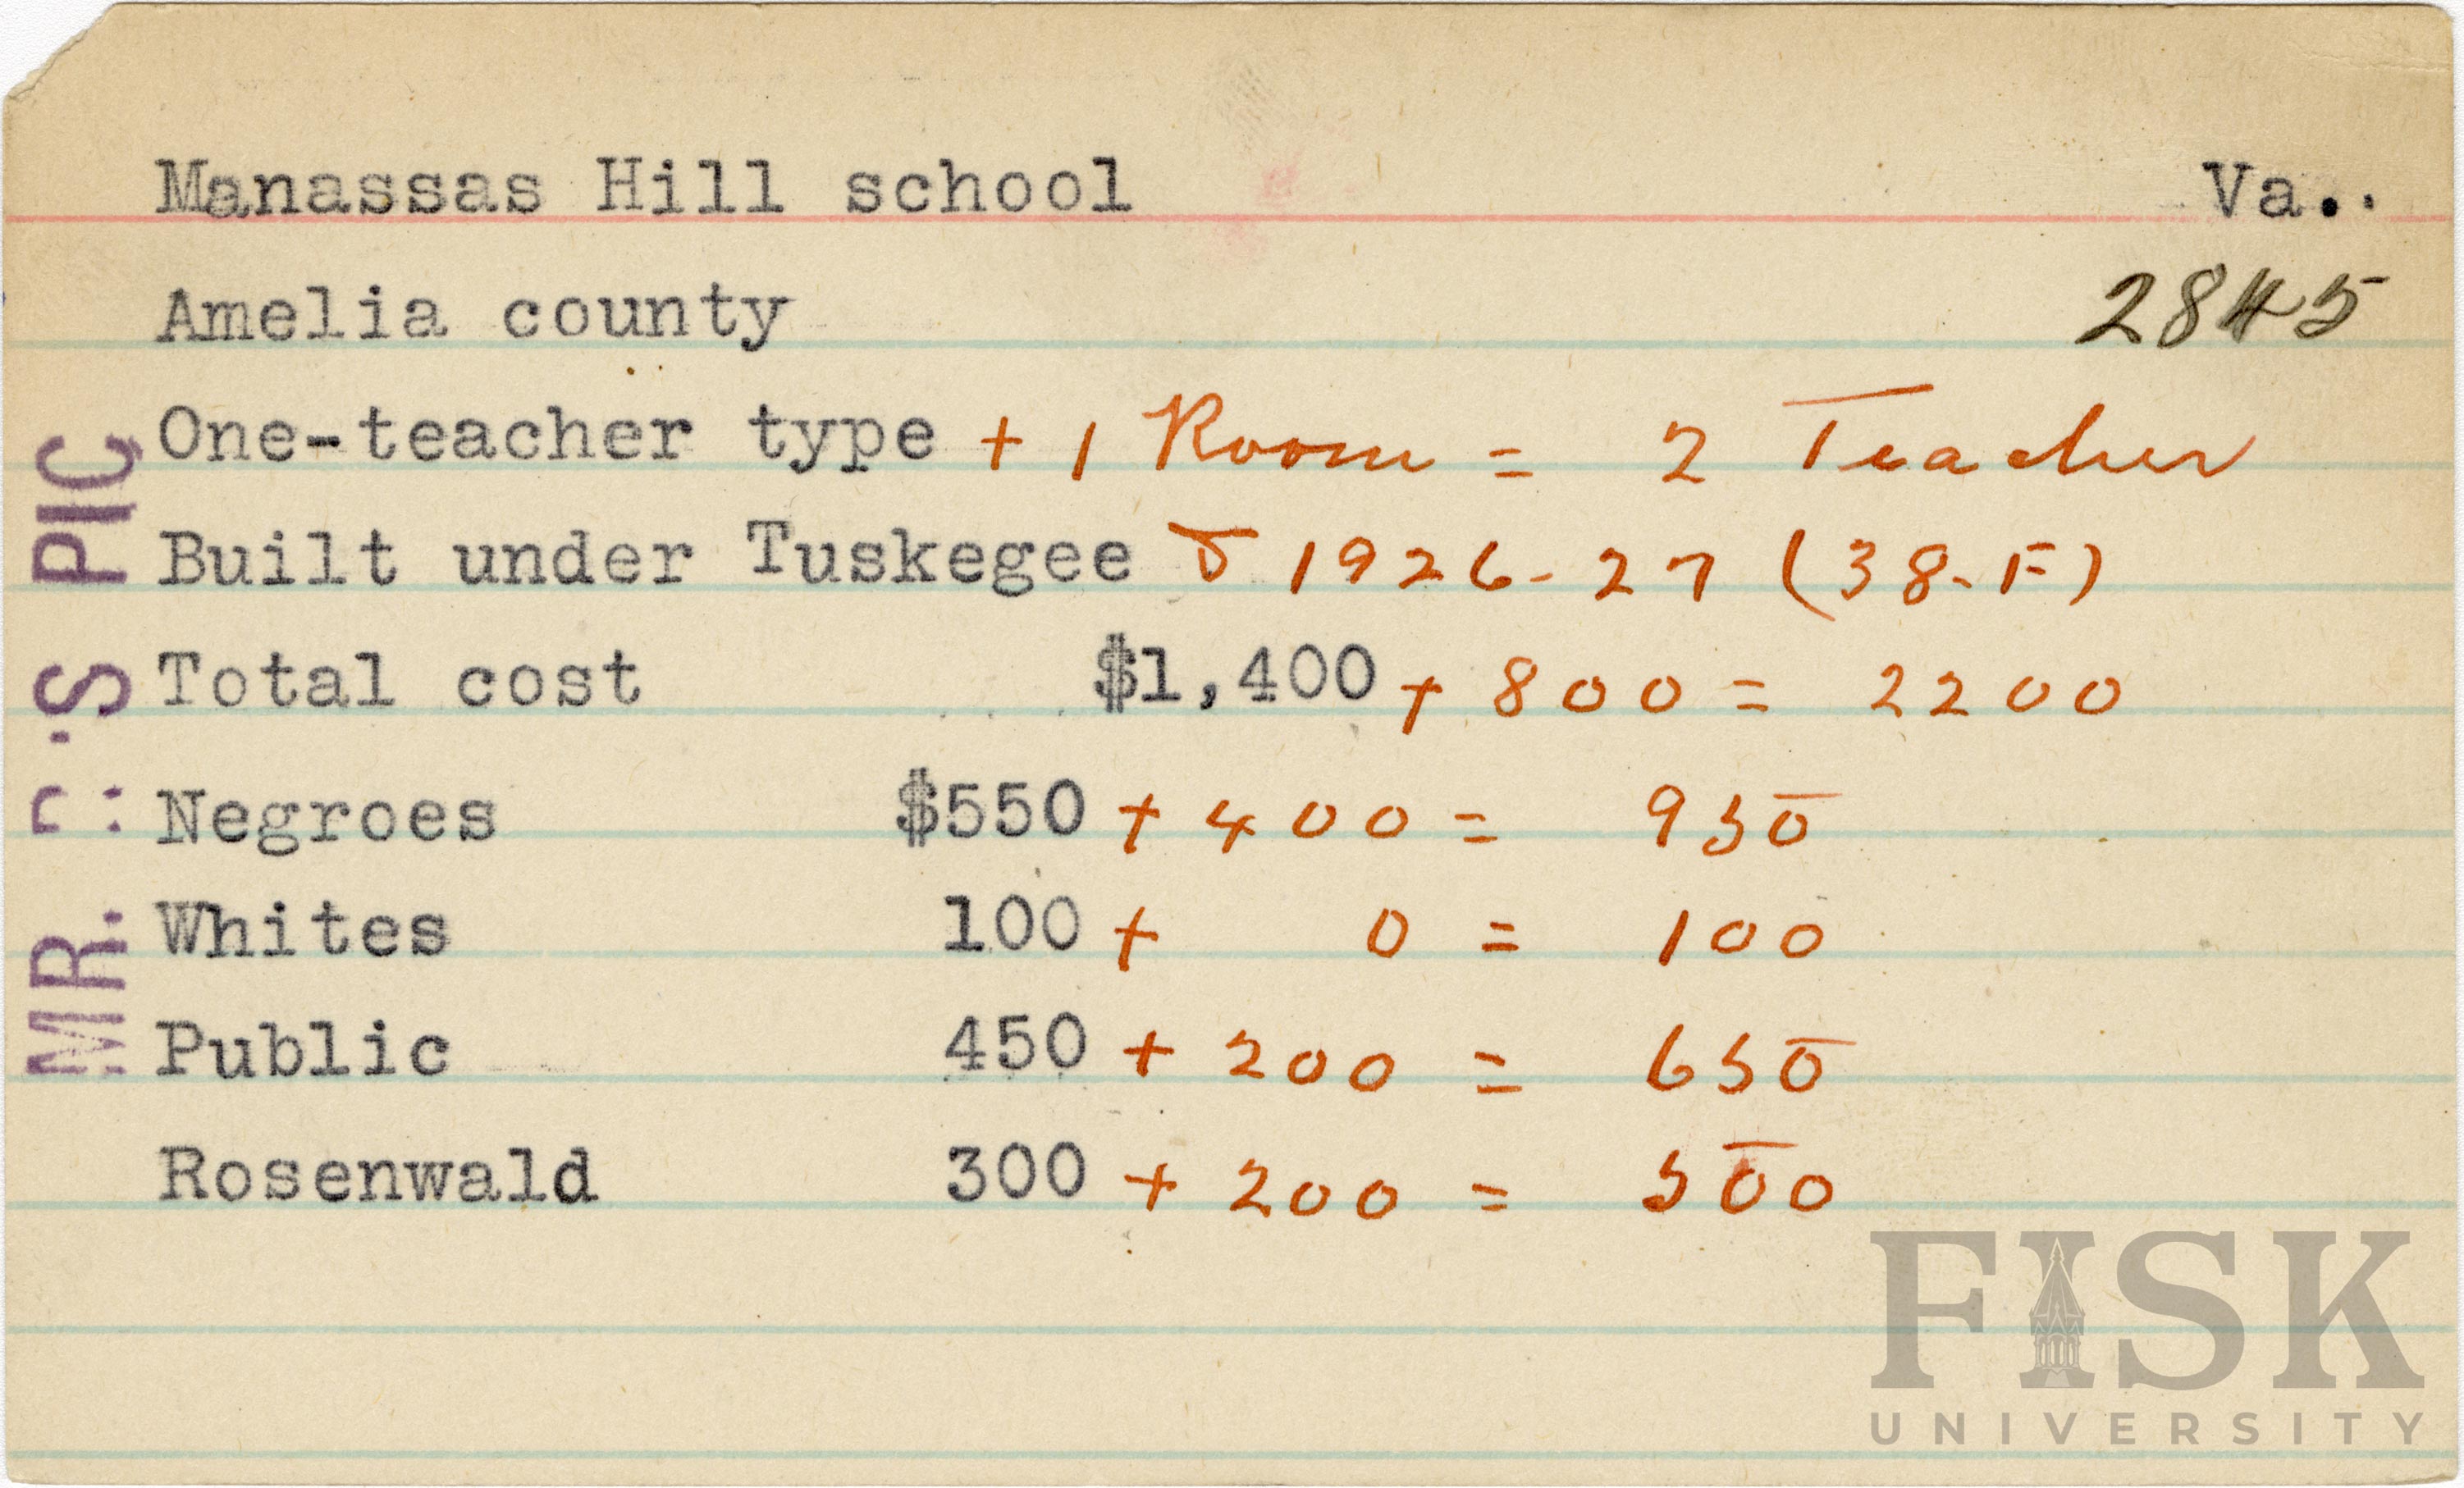 Manassas Hill school Va..
Amelia county 2845
One-teacher type + 1 Room = 2 Teacher
Built under Tuskegee & 1926-27 (38-F)
Total cost $1,400 + 800 = 2200
Negroes $550 + 400 = 950
Whites 100 + 0 = 100
Public 450 + 200 = 650
Rosenwald 300 + 200 = 500
MR. S PIC
FISK
UNIVERSITY